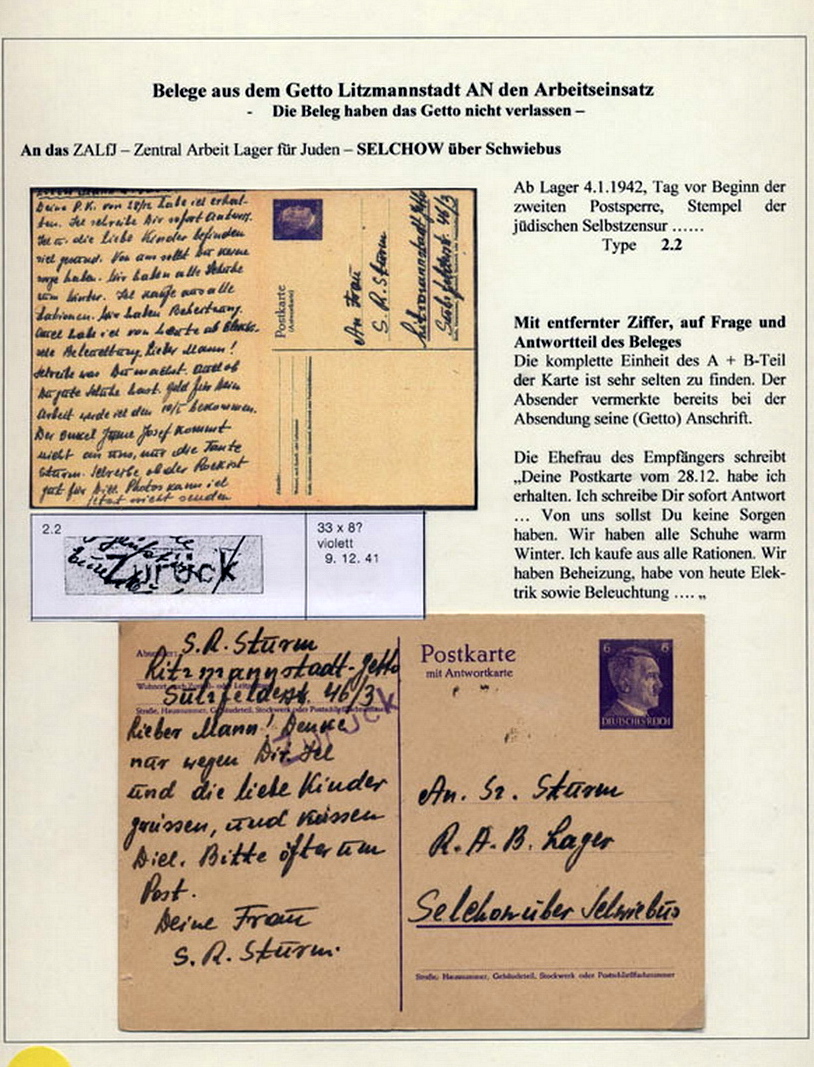 Belege aus dem Getto Litzmannstadt AN den Arbeitseinsatz
- Die Beleg haben das Getto nicht verlassen –
An das ZALfJ – Zentral Arbeit Lager für Juden – SELCHOW über Schwiebus
Deine P.K. vom 28/12 habe ich erhal-
ten. Ich schreibe Dir sofort Antwort.
Ich u. die liebe Kinder befinden
sich gesund. Von uns sollst Du keine
sorge haben. Wir haben alle Schuhe
warm Winter. Ich kaufe aus alle
Rationen. Wir haben Beheitzung.
Auch habe ich von heute ab Elektr.
Beleuchtung. Lieber Mann!
Schreibe was Du machst. Auch ob
Du gute Schuhe hast. Geld für Dein
Arbeit werde ich den 10/I bekommen.
Der Onkel Josef kommt
nicht an uns, nur die Tante
Sturm. Schreibe ob der Rock ist
gut für Dich. Photos kann ich
jetzt nicht senden
Postkarte
(Antwortkarte)
An Frau
S. R. Sturm
Litzmannstadt-Getto
Sulzfelderst. 46/3
Ab Lager 4.1.1942, Tag vor Beginn der
zweiten Postsperre, Stempel der
jüdischen Selbstzensur ……
Type 2.2
Mit entfernter Ziffer, auf Frage und
Antwortteil des Beleges
Die komplette Einheit des A + B-Teil
der Karte ist sehr selten zu finden. Der
Absender vermerkte bereits bei der
Absendung seine (Getto) Anschrift.
Die Ehefrau des Empfängers schreibt
„Deine Postkarte vom 28.12. habe ich
erhalten. Ich schreibe Dir sofort Antwort
… Von uns sollst Du keine Sorgen
haben. Wir haben alle Schuhe warm
Winter. Ich kaufe aus alle Rationen. Wir
haben Beheizung, habe von heute Elek-
trik sowie Beleuchtung …. „
2.2
Zurück
33 x 8?
violett
9. 12. 41
Absender:
S. R. Sturm
Litzmannstadt-Getto
Sulzfelderst. 46/3
Straße, Hausnummer, Gebäudeteil, Stockwerk oder Postschließfachnummer
Zurück
Lieber Mann! Denke
nur wegen Dir. Ich
und die liebe Kinder
grüssen, und küssen
Dich. Bitte öfter um
Post.
Deine Frau
S. R. Sturm.
Postkarte
mit Antwortkarte
6 6
DEUTSCHES REICH
An. Sz. Sturm
R. A. B. Lager
Selchow über Schwiebus
Straße, Hausnummer, Gebäudeteil, Stockwerk oder Postschließfachnummer